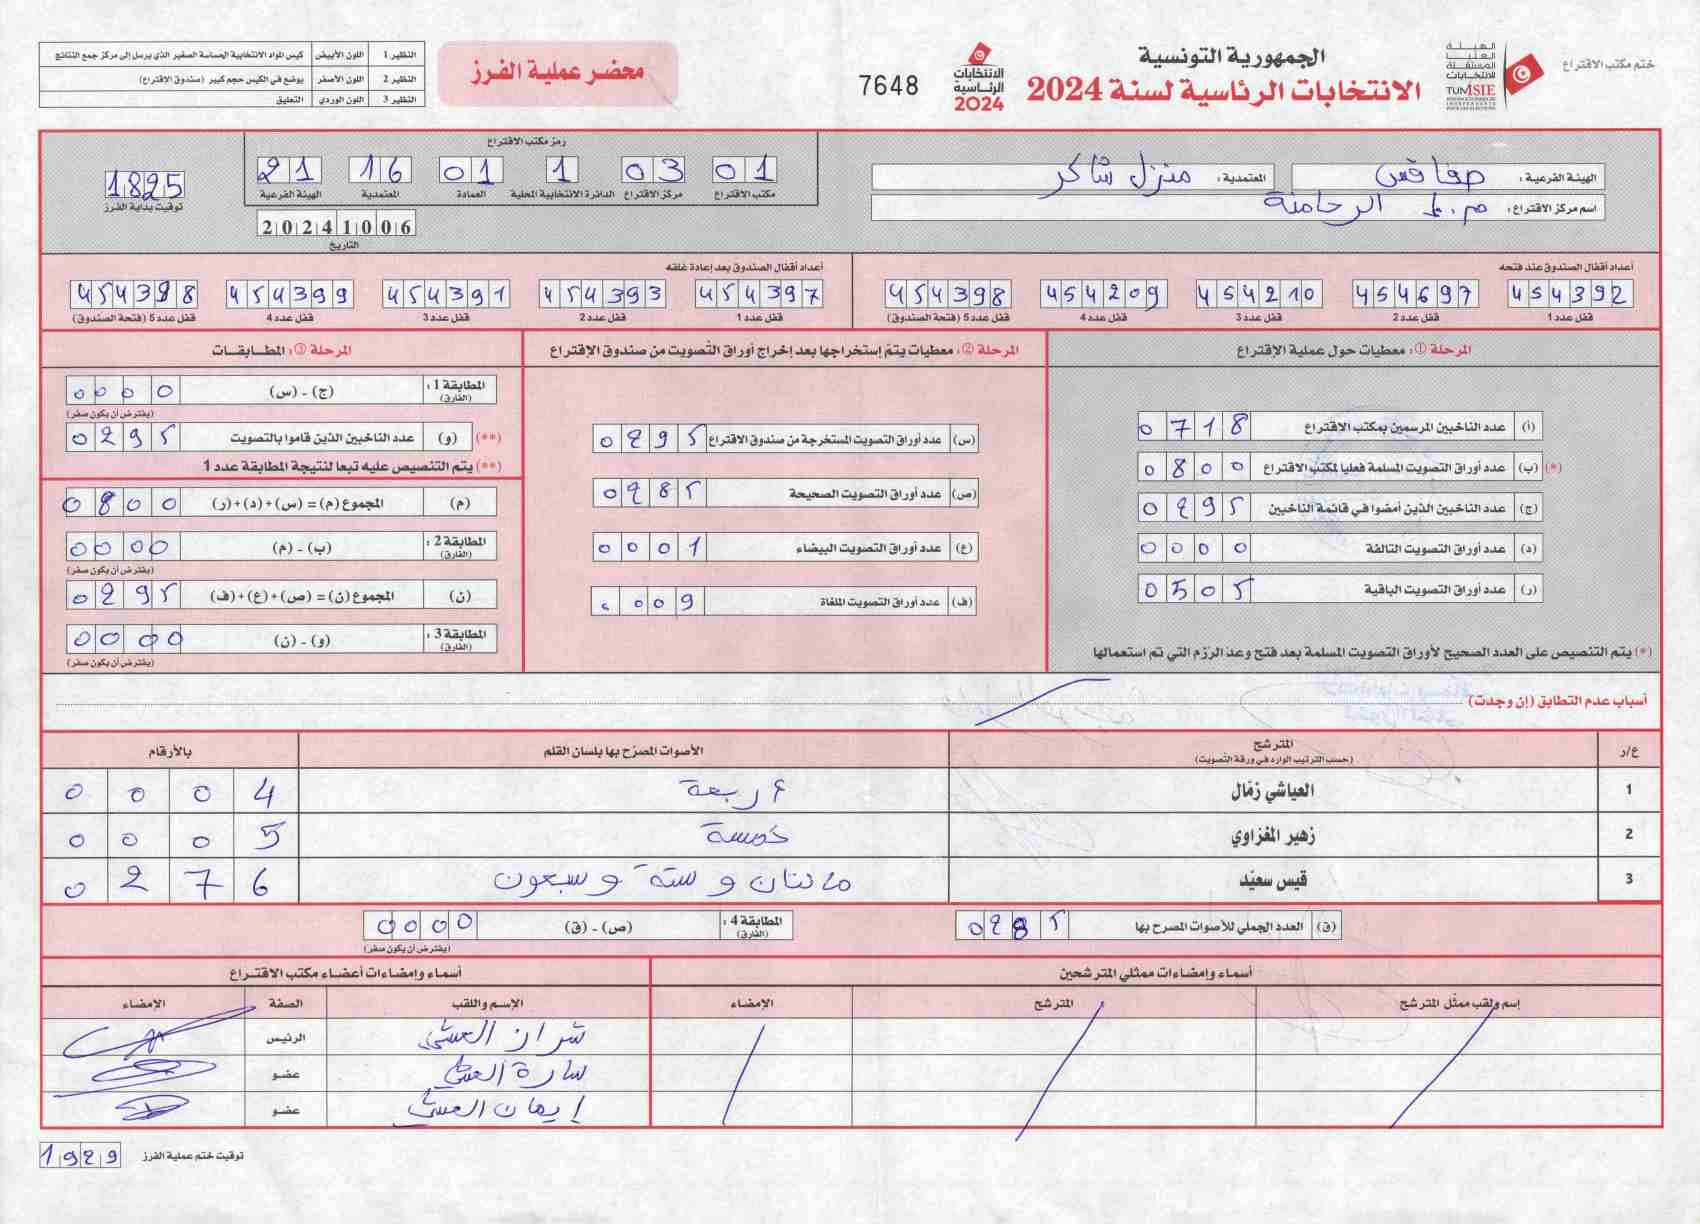 ختم مكتب الاقتراع
الهيئة العليا المستقلة للانتخابات
TUNISIE
الجمهورية التونسية
الانتخابات الرئاسية لسنة 2024
الانتخابات الرئاسية 2024
7648
محضر عملية الفرز
النظير 1 اللون الأبيض كيس المواد الانتخابية الحساسة الصغير الذي يرسل إلى مركز جمع النتائج
النظير 2 اللون الأصفر يوضع في الكيس حجم كبير (صندوق الاقتراع)
النظير 3 اللون الوردي التعليق
الهيئة الفرعية : صفاقس
المعتمدية : منزل شاكر
اسم مركز الاقتراع : م.إ. الرحامنة
رمز مكتب الاقتراع
01 03 1 01 16 21
مكتب الاقتراع مركز الاقتراع الدائرة الانتخابية المحلية العمادة المعتمدية الهيئة الفرعية
20241006
التاريخ
1825
توقيت بداية الفرز
أعداد أقفال الصندوق عند فتحه
454392 454697 454210 454209 454398
قفل عدد 1 قفل عدد 2 قفل عدد 3 قفل عدد 4 قفل عدد 5 (فتحة الصندوق)
أعداد أقفال الصندوق بعد إعادة غلقه
454397 454393 454391 454399 454398
قفل عدد 1 قفل عدد 2 قفل عدد 3 قفل عدد 4 قفل عدد 5 (فتحة الصندوق)
المرحلة ① : معطيات حول عملية الإقتراع
(أ) عدد الناخبين المرسمين بمكتب الاقتراع 0718
(*) (ب) عدد أوراق التصويت المسلمة فعليا لمكتب الاقتراع 0800
(ج) عدد الناخبين الذين أمضوا في قائمة الناخبين 0295
(د) عدد أوراق التصويت التالفة 0000
(ر) عدد أوراق التصويت الباقية 0505
(*) يتم التنصيص على العدد الصحيح لأوراق التصويت المسلمة بعد فتح وعد الرزم التي تم استعمالها
المرحلة ② : معطيات يتم إستخراجها بعد إخراج أوراق التصويت من صندوق الإقتراع
(س) عدد أوراق التصويت المستخرجة من صندوق الاقتراع 0295
(ص) عدد أوراق التصويت الصحيحة 0285
(ع) عدد أوراق التصويت البيضاء 0001
(ف) عدد أوراق التصويت الملغاة 0009
المرحلة ③ : المطابقات
المطابقة 1 : (الفارق) (ج) - (س) 0000
(يفترض أن يكون صفر)
(**) (و) عدد الناخبين الذين قاموا بالتصويت 0295
(**) يتم التنصيص عليه تبعا لنتيجة المطابقة عدد 1
(م) المجموع (م) = (س)+(د)+(ر) 0800
المطابقة 2 : (الفارق) (ب) - (م) 0000
(يفترض أن يكون صفر)
(ن) المجموع (ن) = (ص)+(ع)+(ف) 0295
المطابقة 3 : (الفارق) (و) - (ن) 0000
(يفترض أن يكون صفر)
أسباب عدم التطابق (إن وجدت)
ع/ر المترشح الأصوات المصرّح بها بلسان القلم بالأرقام
(حسب الترتيب الوارد في ورقة التصويت)
1 العياشي زمّال أربعة 0004
2 زهير المغزاوي خمسة 0005
3 قيس سعيّد مائتان وستة وسبعون 0276
(ق) العدد الجملي للأصوات المصرح بها 0285
المطابقة 4 : (الفارق) (ص) - (ق) 0000
(يفترض أن يكون صفر)
أسماء وإمضاءات ممثلي المترشحين
إسم ولقب ممثّل المترشح المترشح الإمضاء
أسماء وإمضاءات أعضاء مكتب الاقتراع
الإسم واللقب الصفة الإمضاء
الرئيس
سارة العشي عضو
إيمان العشي عضو
توقيت ختم عملية الفرز 1929